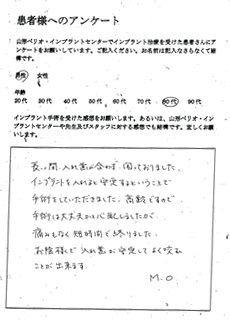 患者様へのアンケート
山形ペリオ・インプラントセンターでインプラント治療を受けた患者さんにア
ンケートをお願いしています。ご記入ください。お名前は記入なさらなくて結
構です。
男性 女性
年齢
20代 30代 40代 50代 60代 70代 80代 90代
インプラント手術を受けた感想をお願いします。あるいは、山形ペリオ・イン
プラントセンターや先生及びスタッフに対する感想でも結構です。宜しくお願
いします。
長い間、入れ歯が合わず、困っておりました。
インプラントを入れると安定するということで
手術をしていただきました。高齢ですので
手術は大丈夫かと心配しましたが、
痛みもなく短時間で終りました。
お陰様で入れ歯が安定してよく咬む
ことが出来ます。
M.O